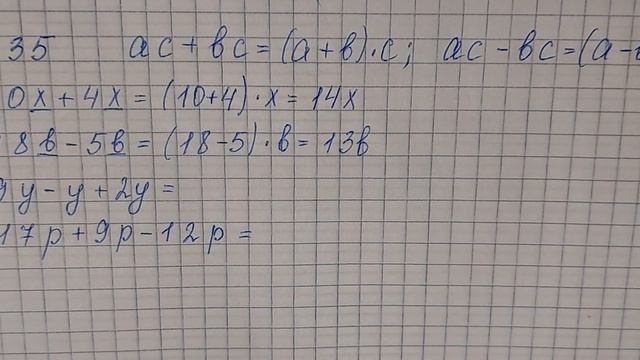 35 ac + bc = (a + b) · c; ac - bc = (a -
0x + 4x = (10+4) · x = 14x
8b - 5b = (18-5) · b = 13b
9y - y + 2y =
17p + 9p - 12p =